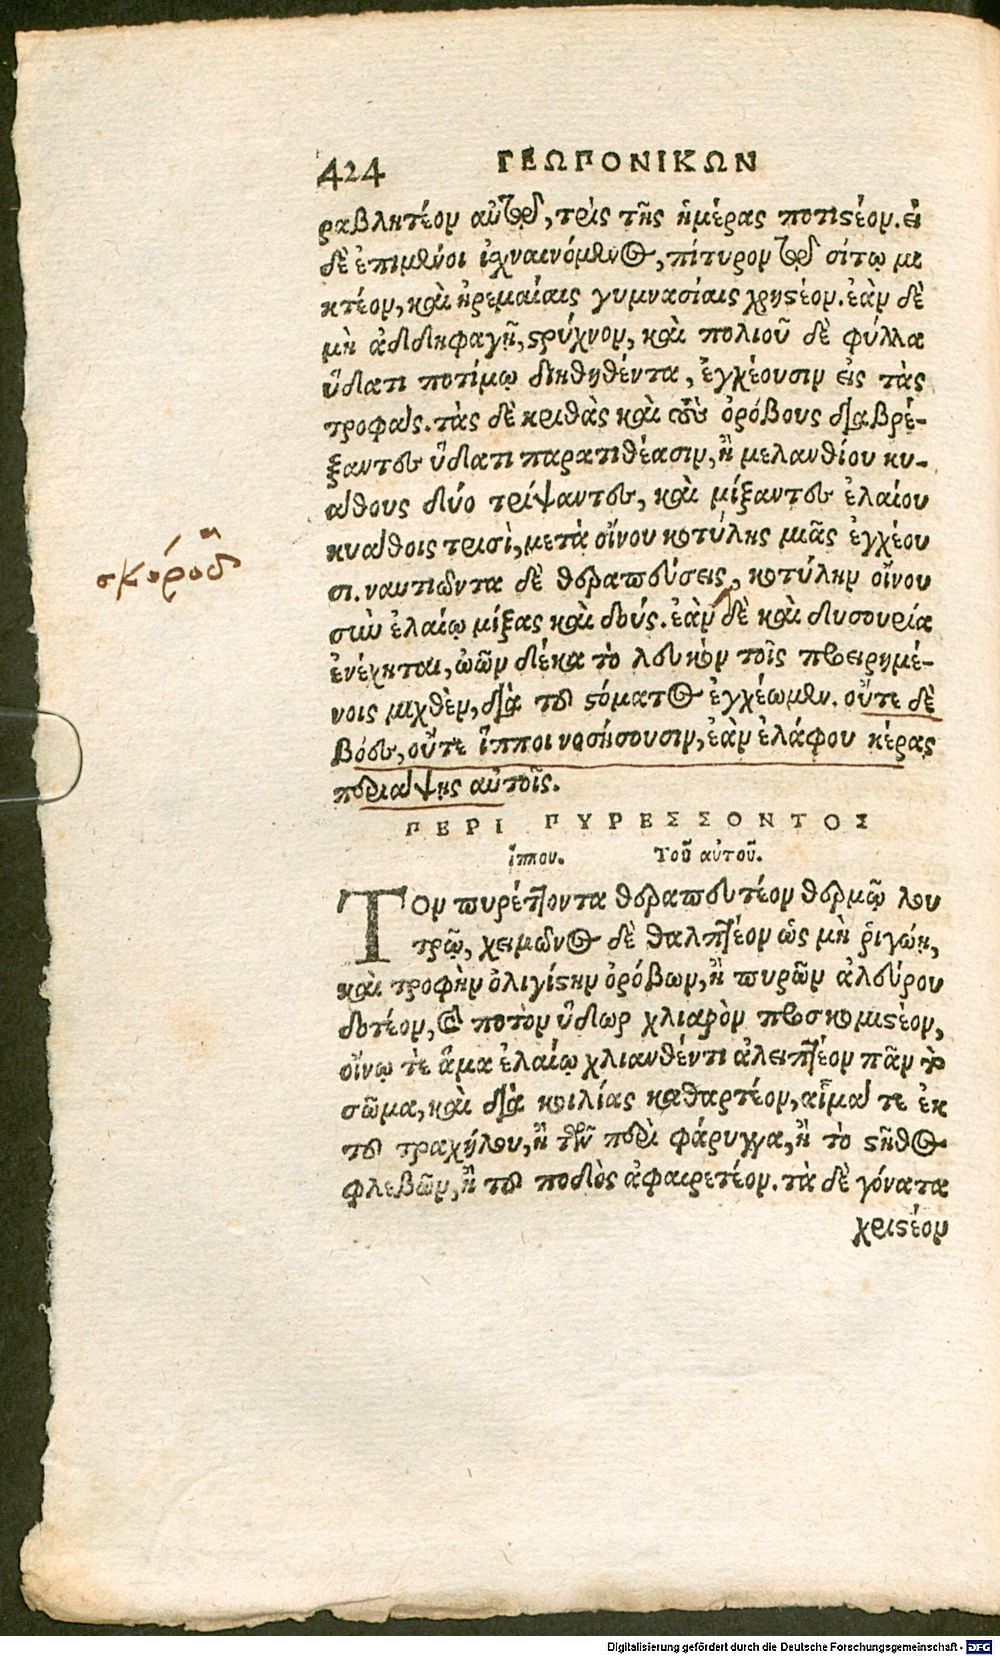 424 ΓΕΩΠΟΝΙΚΩΝ
ραβλητέον αὐτῷ, τρὶς τῆς ἡμέρας ποτιστέον. εἰ
δὲ ἐπιμένοι ἰχναινόμενος, πίτυρον τῷ σίτῳ μι
κτέον, καὶ ἠρεμαίαις γυμνασίαις χρηστέον. ἐὰν δὲ
μὴ ἀδδηφαγῇ, στρύχνον, καὶ πολιοῦ δὲ φύλλα
ὕδατι ποτίμῳ διηθηθέντα, ἐγχέουσιν εἰς τὰς
τροφάς. τὰς δὲ κριθὰς καὶ τοὺς ὀρόβους διαβρέ-
ξαντες ὕδατι παρατιθέασιν, ἢ μελανθίου κυ-
άθους δύο τρίψαντες, καὶ μίξαντες ἐλαίου
κυάθοις τρισὶ, μετὰ οἴνου κοτύλης μιᾶς ἐγχέου
σι. ναυτιῶντα δὲ θεραπεύσεις, κοτύλην οἴνου
σκόροδ
σὺν ἐλαίῳ μίξας καὶ δούς. ἐὰν δὲ καὶ δυσουρία
ἐνέχηται, ὠῶν δέκα τὸ λευκὸν τοῖς προειρημέ-
νοις μιχθὲν, διὰ τοῦ στόματος ἐγχέωμεν. οὔτε δὲ
βόες, οὔτε ἵπποι νοσήσουσιν, ἐὰν ἐλάφου κέρας
περιάψῃς αὐτοῖς.
ΠΕΡΙ ΠΥΡΕΣΣΟΝΤΟΣ
ἵππου. Τοῦ αὐτοῦ.
ΤΟν πυρέττοντα θεραπευτέον θερμῷ λου
τρῷ, χειμῶνος δὲ θαλπτέον ὡς μὴ ῥιγώῃ,
καὶ τροφὴν ὀλιγίστην ὀρόβων, ἢ πυρῶν ἀλεύρου
δοτέον, καὶ ποτὸν ὕδωρ χλιαρὸν προσκομιστέον,
οἴνῳ τὲ ἅμα ἐλαίῳ χλιανθέντι ἀλειπτέον πᾶν τὸ
σῶμα, καὶ διὰ κοιλίας καθαρτέον, αἷμά τε ἐκ
τοῦ τραχήλου, ἢ τῶν περὶ φάρυγγα, ἢ τὸ στῆθος
φλεβῶν, ἢ τοῦ ποδὸς ἀφαιρετέον. τὰ δὲ γόνατα
χριστέον
Digitalisierung gefördert durch die Deutsche Forschungsgemeinschaft - DFG